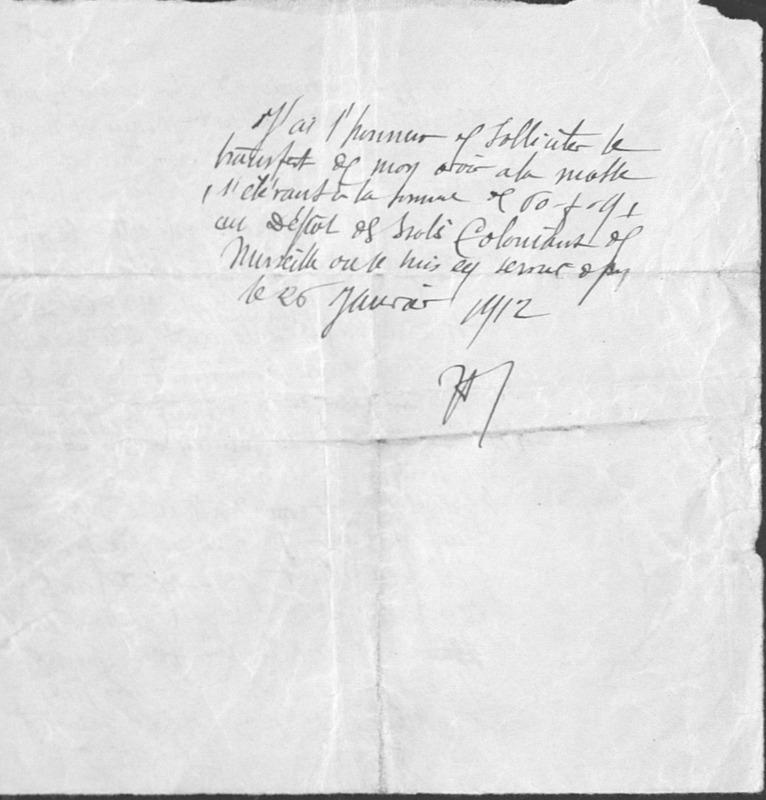 J'ai l'honneur de Solliciter le
transfert de mon avoir a la masse
s'élévant à la somme de 60 f 91
au Déptot des Isolés Coloniaux de
Marseille ou je suis en service depuis
le 26 Janvier 1912